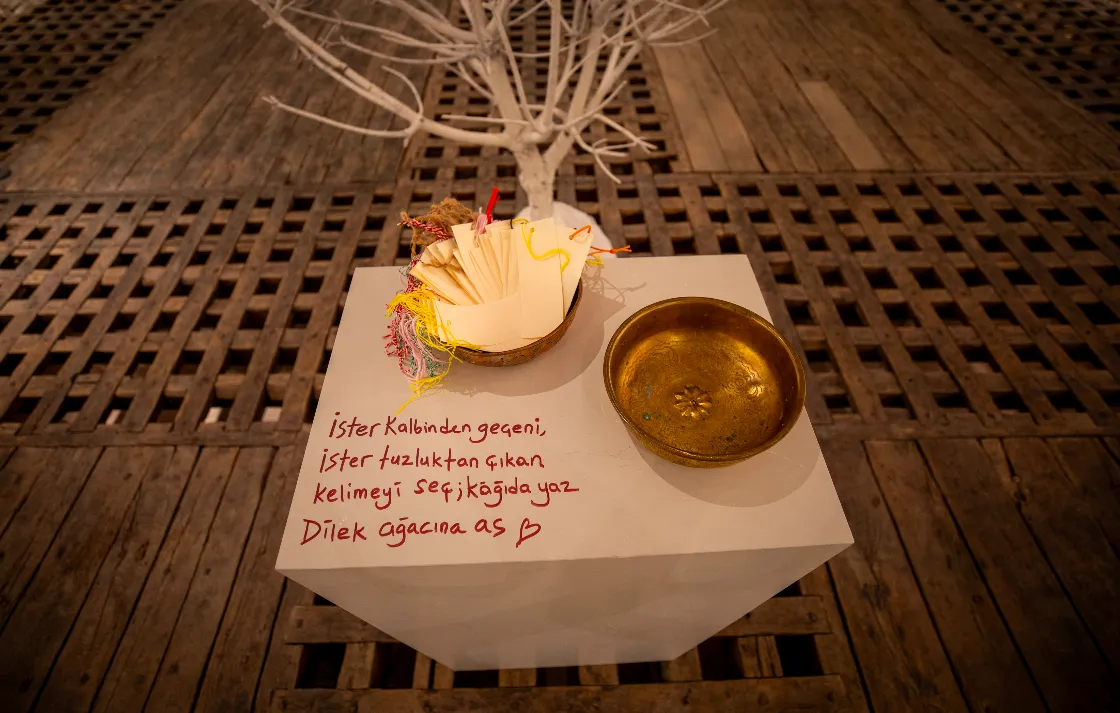 İster Kalbinden geçeni,
İster tuzluktan çıkan
kelimeyi seç; kâğıda yaz
Dilek ağacına as